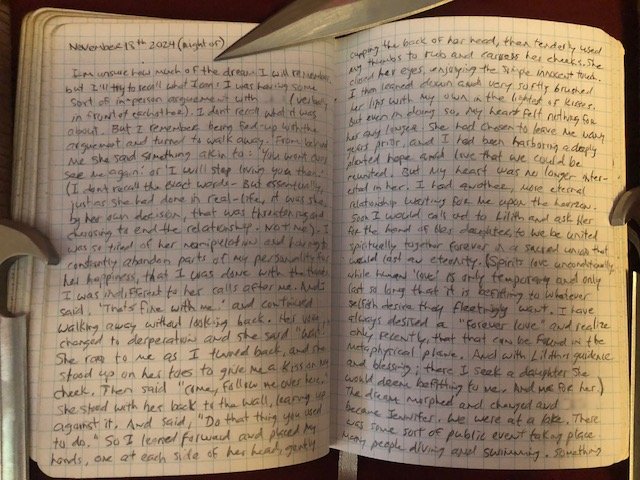 November 18th 2024 (night of)
I'm unsure how much of the dream I will remember
but I'll try to recall what I can: I was having some
sort of in-person arguement with (verbally,
in front of eachother). I don't recall what it was
about. But I remember being fed-up with the
arguement and turned to walk away. From behind
me she said something akin to: "You won't ever
see me again" or "I will stop loving you then."
(I don't recall the exact words - But essentially,
just as she had done in real-life, it was she,
by her own decision, that was threatening and
choosing to end the relationship. Not me). I
was so tired of her manipulation and having to
constantly abandon parts of my personality for
her happiness, that I was done with the threats
I was indifferent to her calls after me. And I
said. "That's fine with me" and continued
walking away without looking back. Her voice
changed to desperation and she said "Wait"
She ran to me as I turned back, and she
stood up on her toes to give me a kiss on my
cheek. Then said "come, follow me over here."
She stood with her back to the wall, leaning up
against it. And said, "Do that thing you used
to do." So I leaned forward and placed my
hands, one at each side of her head, gently
cupping the back of her head, then tenderly used
my thumbs to rub and caress her cheeks. She
closed her eyes, enjoying the simple innocent touch.
I then leaned down and very softly brushed
her lips with my own in the lightest of kisses.
But even in doing so, my heart felt nothing for
her any longer. She had chosen to leave me many
years prior, and I had been harboring a deeply
planted hope and love that we could be
reunited. But my heart was no longer inter-
ested in her. I had another, more eternal
relationship waiting for me upon the horizon.
Soon I would call out to Lilith and ask Her
for the hand of Her daughter, to be united
spiritually together forever in a sacred union that
would last an eternity. (Spirits love unconditionally
while human "love" is only temporary and only
last so long that it is befitting to whatever
selfish desire they fleetingly want. I have
always desired a "forever love" and realize
only recently, that that can be found in the
metaphysical plane. And with Lilith's guidence
and blessing; there I seek a daughter She
would deem befitting to me. And me for her.)
The dream morphed and changed and
became Jennifer. We were at a lake. There
was some sort of public event taking place
Many people diving and swimming. Something